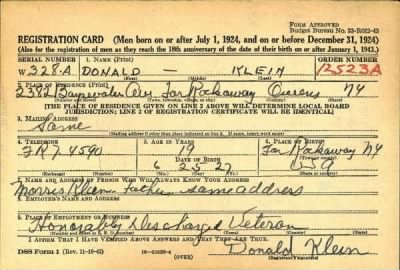 FORM APPROVED
Budget Bureau No. 33-R012-43
REGISTRATION CARD (Men born on or after July 1, 1924, and on or before December 31, 1924)
(Also for the registration of men as they reach the 18th anniversary of the date of their birth on or after January 1, 1943.)
SERIAL NUMBER 1. NAME (Print) ORDER NUMBER
W 328-A DONALD — KLEIN 12523A
(First) (Middle) (Last)
2. PLACE OF RESIDENCE (Print)
2382 Bayswater Ave, Far Rockaway Queens NY
(Number and street) (Town, township, village, or city) (County) (State)
[THE PLACE OF RESIDENCE GIVEN ON LINE 2 ABOVE WILL DETERMINE LOCAL BOARD
JURISDICTION; LINE 2 OF REGISTRATION CERTIFICATE WILL BE IDENTICAL]
3. MAILING ADDRESS
Same
(Mailing address if other than place indicated on line 2. If same, insert word same)
4. TELEPHONE 5. AGE IN YEARS 6. PLACE OF BIRTH
FR7 4590 19 Far Rockaway NY
DATE OF BIRTH
6 25 27
7. NAME AND ADDRESS OF PERSON WHO WILL ALWAYS KNOW YOUR ADDRESS
Morris Klein Father same address
8. EMPLOYER'S NAME AND ADDRESS
9. PLACE OF EMPLOYMENT OR BUSINESS
Honorably Discharged Veteran
I AFFIRM THAT I HAVE VERIFIED ABOVE ANSWERS AND THAT THEY ARE TRUE.
DSS Form 1 (Rev. 11-16-42) (OVER) Donald Klein
(Registrant's signature)